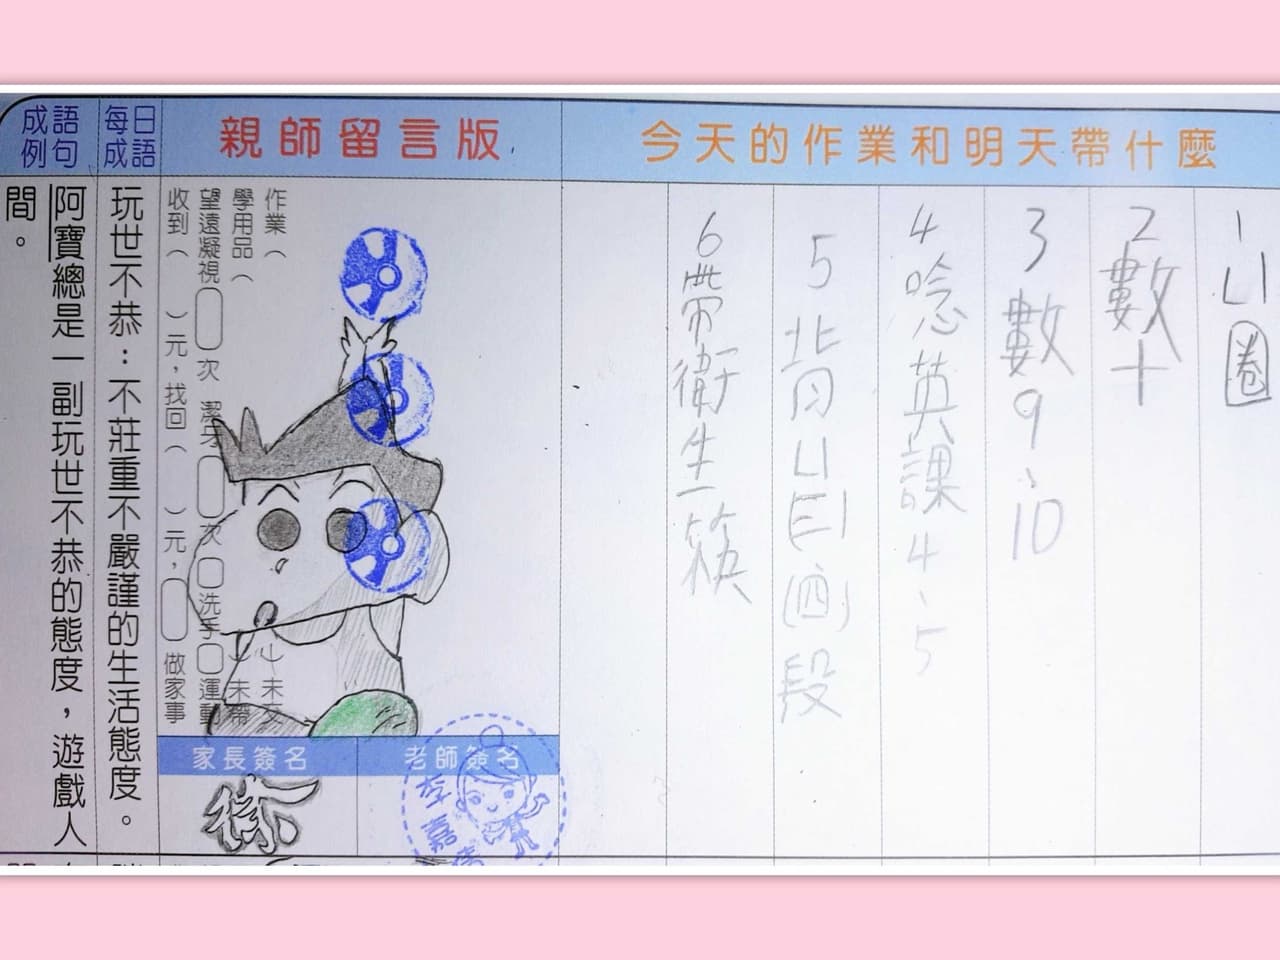 今天的作業和明天帶什麼
1 ㄩ圈
2 數十
3 數9、10
4 唸英課4、5
5 背ㄩ(四)段
6 帶衛生筷
親師留言版
作業（ ）未交
學用品（ ）未帶
望遠凝視 次 潔牙 次 洗手 運動
收到（ ）元，找回（ ）元， 做家事
家長簽名
徐
老師簽名
李嘉
每日成語
玩世不恭：不莊重不嚴謹的生活態度。
成語例句
阿寶總是一副玩世不恭的態度，遊戲人
間。